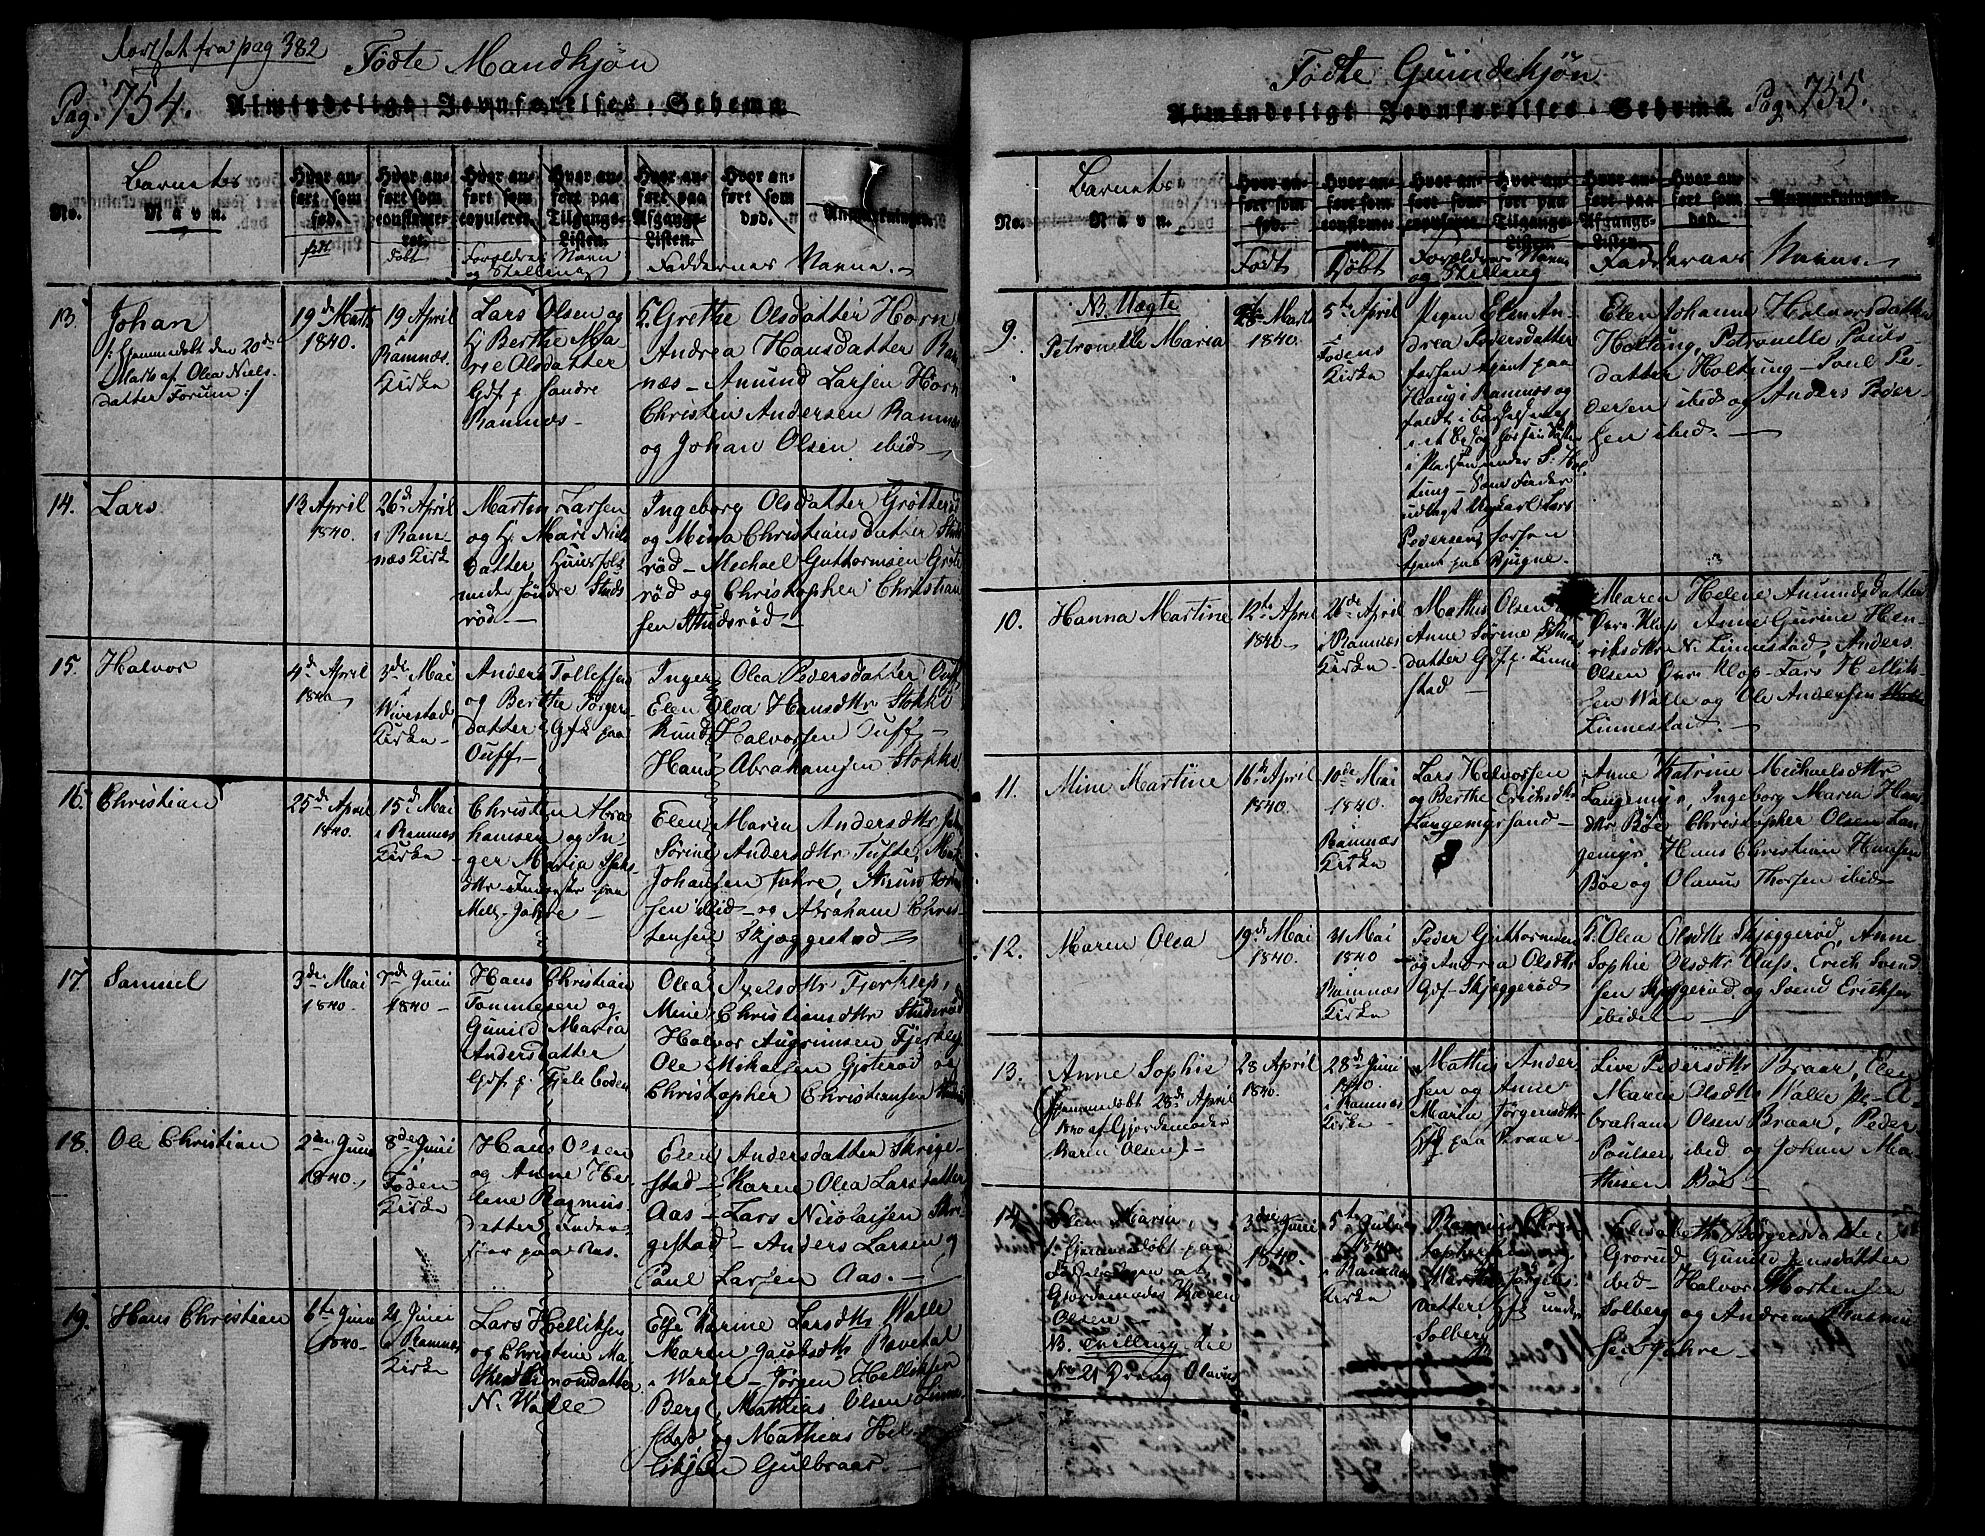 Fortsat fra pag 382
Fødte Mandkjøn
Pag. 754. Almindeligt Jevnførelses-Schema
No.
Barnets Navn.
Hvor anført som fød.
født
Hvor anført som confirmeret.
døbt
Hvor anført som copuleret.
Hvor anført paa Tilgangs-Listen.
Forældres Navn og Stilling
Hvor anført paa Afgangs-Listen.
Hvor anført som død.
Anmærkninger.
Faddernes Navne.
13.
Johan
/: Hjemmedøbt den 20de
Marts af Olea Niels-
datter Forum :/
19de Marts
1840.
19 April
i
Ramnæs
Kirke
Lars Olsen og
H. Berthe Ma-
rie Olsdatter
Gdf. p. Søndre
Ramnæs
H. Grethe Olsdatter Horn
Andrea Hansdatter Ram-
næs – Amund Larsen Horn
Christen Andersen Ramnæs
og Johan Olsen ibid –
14.
Lars
13 April
1840.
26de April
i Ram-
næs Kirke
Martin Larsen
og H. Mari Niels-
datter Huusfolk
under Søndre Studs-
rød –
Ingeborg Olsdatter Grøtterød
og Mina Christiansdatter Studs-
rød – Mechael Guttormsen Grøte-
rød og Christopher Christian-
sen Studsrød –
15.
Halvor
4de April
1840
3de Mai
i
Wivestad
Kirke –
Anders Tollefsen
og Berthe Jørgens-
datter Gfk paa
Ouff –
Inger Olea Pedersdatter Ouff
Elen Olva Hansdtr Stokke
Knud Halvorsen Ouff –
Hans Abrahamsen Stokke
16.
Christian
25de April
1840.
15de Mai
i Ramnæs
Kirke
Christen Abra-
hamsen og In-
ger Maria
dtr Inderster paa
Mell. Jahre –
Elen Maria Andersdtr
Sørine Andersdtr Tufte,
Johansen Jahre, Amund
sen ibid – og Abraham Chris-
tensen Skjæggestad –
17.
Samuel
3de Mai
1840.
7de Juni
1840 –
Hans Christian
Tommesen og
Gunild Maria
Andersdatter
Gdf. p.
Olea Axelsdtr Fjerklep,
Mine Christiansdtr Studsrød
Halvor Asgrimsen Fjerklep
Ole Mikalsen Gjøterød og
Christopher Christiansen
18.
Ole Christian
2den Juni
1840.
8de Juni
i
Føden
Kirke
Hans Olsen
og Anne He-
lene Rasmus-
datter Inder-
ster paa Aas.
Elen Andersdatter Skrige-
stad – Karen Olea Larsdatter
Aas – Lars Nicolaisen Skri-
gestad – Anders Larsen og
Paul Larsen Aas. –
19.
Hans Christian
6te Juni
1840.
21 Juni
i Ramnæs
Kirke
Lars Helliksen
og Christine Ma-
thea Simondatter
N. Walle
Else Karine Larsdtr Walle
Maren Jacobsdtr Revetal
i Waale – Jørgen Helliksen
Berg, Mathias Olsen Linne-
stad og Mathias Hel-
liksen Gulbraar. –
Fødte Qvindekjøn
Almindeligt Jevnførelses-Schema Pag. 755.
No.
Barnets Navn.
Hvor anført som fød.
Født
Hvor anført som confirmeret.
Døbt
Hvor anført som copuleret.
Hvor anført paa Tilgangs-Listen.
Forældres Navne og Stilling
Hvor anført paa Afgangs-Listen.
Hvor anført som død.
Anmærkninger.
Faddernes Navne.
9.
NB. Uægte
Petronelle Maria
28 Marts
1840.
5te April
i
Fødens
Kirke
Pigen Elen An-
drea Pedersdatter
forhen tjent paa
Haug i Ramnæs og
faldt i Barselseng
i et Besøg hos sin Fatter
i Pladsen under S. Hol-
tung – Som Fader
udlagt Ungkarl Lars
Pedersen, forhen
tjent paa Bjugne.
Elen Johanne Halvorsdatter
Holtung, Petronelle Pauls-
datter Holtung – Poul Pe-
dersen ibid og Anders Peder-
sen ibid. –
10.
Hanna Martine
12te April
1840 –
26de April
i Ramnæs
Kirke –
Mathis Olsen
Anne Sørine
datter Gdf. p. Linne-
stad –
Maren Helene Amundsdatter
Øvre Klop Anne Gurine Hen-
riksdtr N. Linnestad, Anders
Olsen Øvre Klop – Lars Hellik-
sen Walle og Ole Andersen
Linnestad –
11.
Mine Martine
16de April
1840.
10de Mai
1840.
i
Ramnæs
Kirke
Lars Halvorsen
og Berthe Ericksdtr
Langemyrsand –
Anne Katrine Michaelsdtr
Langemyr, Ingeborg Maria Hans-
dtr Bøe Christopher Olsen Lan-
gemyr. Hans Christian Hansen
Bøe og Olavus Thorsen ibid –
12.
Maren Olea
19de Mai
1840.
31 Mai
1840
i
Ramnæs
Kirke
Peder Guttormsen
og Andrea Olsdtr
Gdf. Skjæggerød
H. Olea Olsdtr Skjæggerød, Anne
Sophie Olsdtr Aass. Erich Svend-
sen Skjæggerød og Svend Ericksen
ibiden –
13.
Anne Sophie
(Hjemmedøbt 28de April
1840 af Gjordemoder
Karen Olsen) –
28 April
1840.
28de Juni
1840
i Ramnæs
Kirke
Mathis Ander-
sen og Anne
Maria Jørgensdtr
Gfk paa Braar
Live Pedersdtr Braar, Elen
Maria Olsdtr Walle – A-
braham Olsen Braar, Peder
Poulsen ibid og Johan Ma-
thisen Bøe –
14.
Elen Maria,
/: Hjemmedøbt paa
Fødselsdagen af
Gjordemoder Karen
Olsen –
NB. Tvilling til
No 21 Dreng Olavus
3die Juni
1840.
5te Juli
1840
i Ramnæs
Kirke
Rasmus Chri-
stophersen og
Jørgens-
datter Gfk under
Solberg
Elisabeth Børgersdatter
Grorud Gunild Jensdatter
ibid – Halvor Mortensen
Solberg og Andreas Rasmu-
sen Jahre –